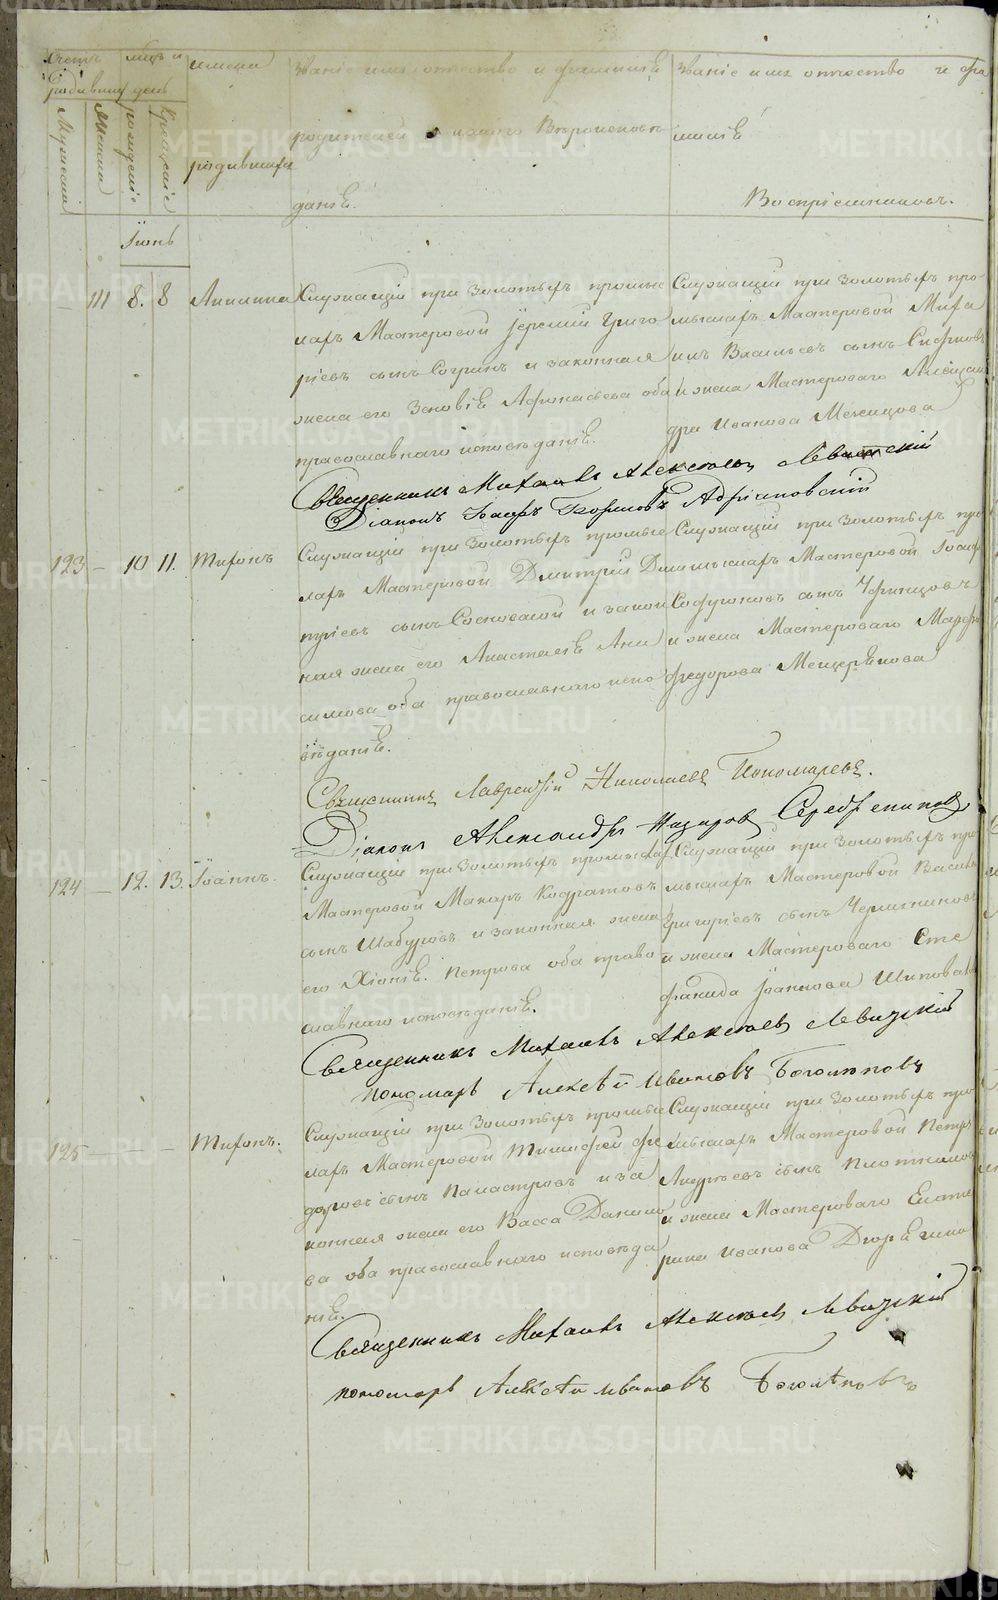 Счетъ родившихся
мѣсц и день
имена родившихся
Званіе имя отчество и фамилія родителей и какого Вѣроисповѣданія.
Званіе имя отчество и фамилія Воспріемниковъ.
Мужеска
Женска
рожденіе
Крещеніе
Іюнь
111 8. 8
Служащій при золотыхъ промыс
лахъ Мастеровой Іеремій Григо
ріевъ сынъ и законная
жена его Зеновія Афонасьева оба
православнаго исповѣданія.
Служащій при золотыхъ про
мыслахъ Мастеровой
Васильевъ сынъ
и жена Мастероваго Алексан
дра Иванова
Священникъ Михаилъ Алексѣевъ Левитскій
Діаконъ Адріановскій
123 — 10 11. Тифонъ
Служащій при золотыхъ промыс
лахъ Мастеровой Дмитрій
сынъ и закон
ная жена его Анастасія Ани
симова оба православнаго испо
вѣданія.
Служащій при золотыхъ про
мыслахъ Мастеровой
сынъ
и жена Мастероваго Марфа
Федорова Мещерякова
Священникъ Лаврентій Николаевъ Пономаревъ.
Діаконъ Александръ Назаровъ Серебрениковъ
124 — 12. 13. Іоаннъ.
Служащій при золотыхъ промыслах
Мастеровой Макаръ Кодратовъ
сынъ Шабуровъ и законная жена
его Хіонія Петрова оба право
славнаго исповѣданія.
Служащій при золотыхъ про
мыслахъ Мастеровой Василій
Григоріевъ сынъ
и жена Мастероваго Сте
фанида Іоаннова Шипова
Священникъ Михаилъ Алексѣевъ Левитскій
пономарь Алексѣй Ивановъ Боголѣповъ
125 — — — Тифонъ.
Служащій при золотыхъ промыс
лахъ Мастеровой Тимофей Фе
доровъ сынъ и за
конная жена его Васса Данило
ва оба православнаго исповѣда
нія.
Служащій при золотыхъ про
мыслахъ Мастеровой Петръ
Андреевъ сынъ Плотников
и жена Мастероваго Екате
рина Иванова
Священникъ Михаилъ Алексѣевъ Левитскій
пономарь Алексѣй Ивановъ Боголѣповъ
METRIKI.GASO-URAL.RU